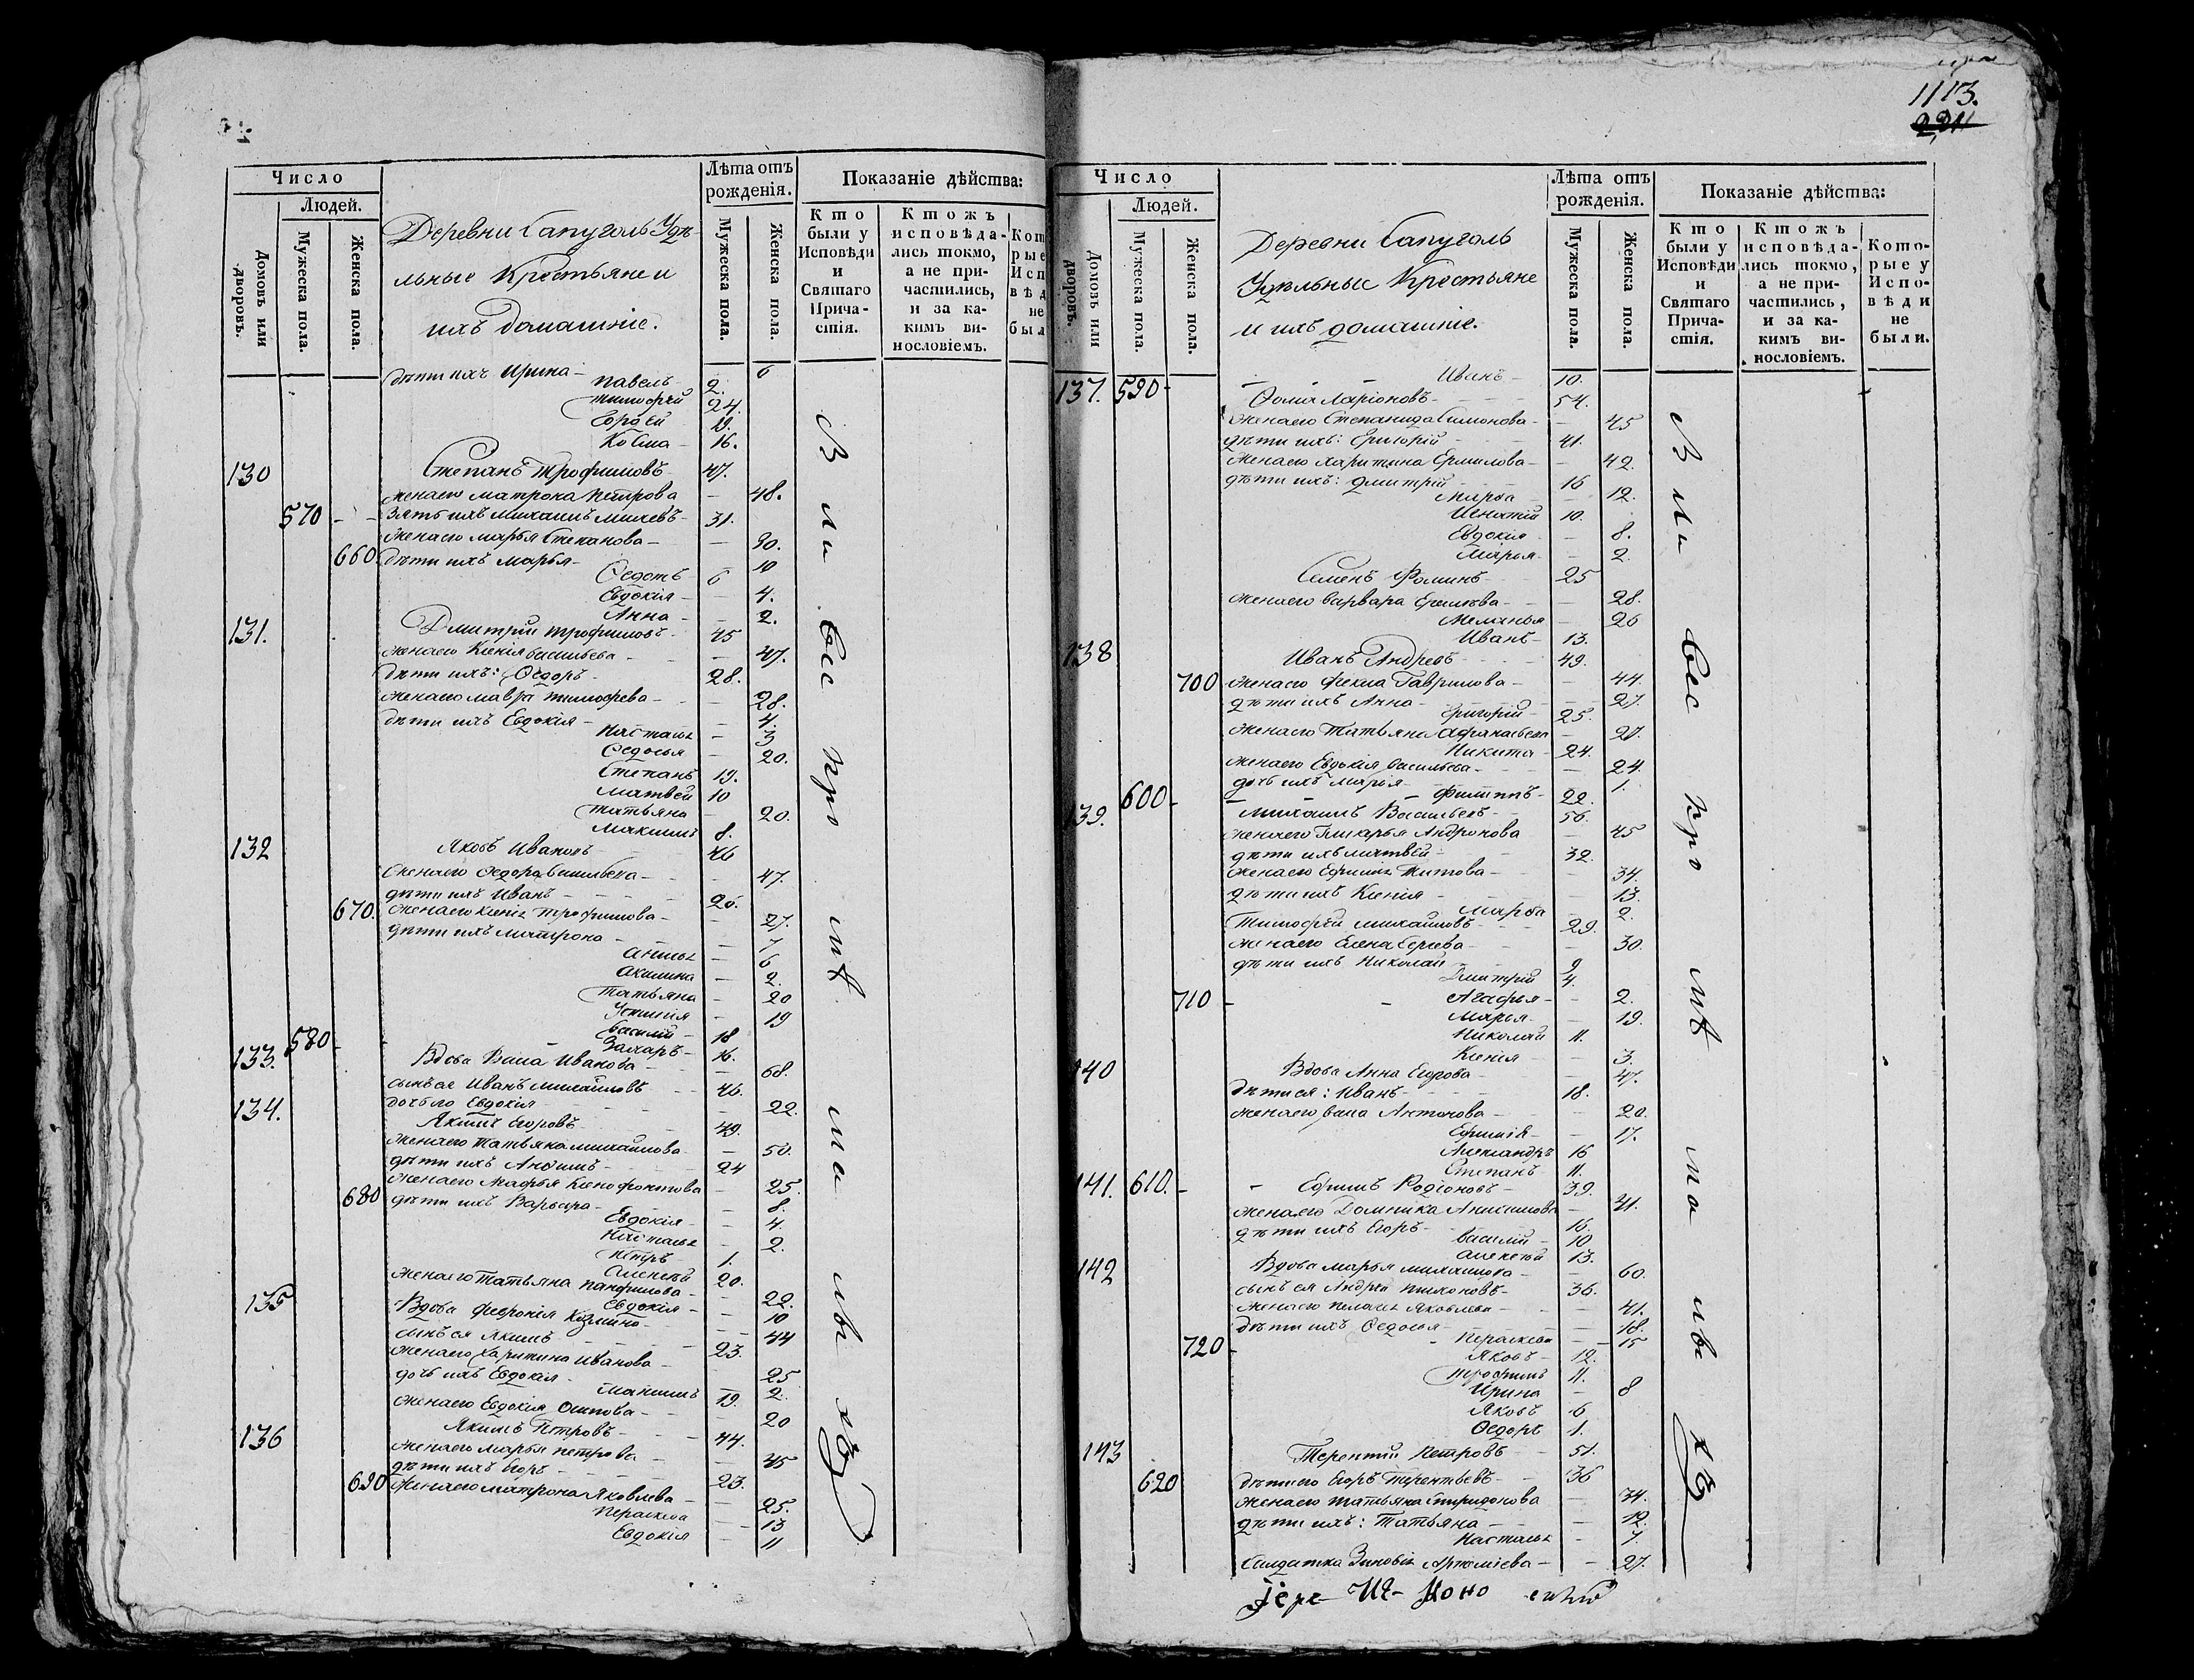 Число
Людей.
Домовъ или дворовъ.
Мужеска пола.
Женска пола.
Деревни Сапуголь Удѣ-
льные Крестьяне и
ихъ домашніе.
Лѣта отъ рожденія.
Мужеска пола.
Женска пола.
Показаніе дѣйства:
Кто были у Исповѣди и Святаго Прича-стія.
Ктожъ исповѣда-лись токмо, а не при-частились, и за ка-кимъ ви-нословіемъ.
дѣти ихъ Ирина - 6
Павелъ 2.
Тимофей 24.
Сергѣй 19.
Козма 16.
130 Степанъ Трофимовъ 47.
жена его Матрона Петрова - 48.
570 - - зять ихъ Михаилъ 31.
жена его Марья Степанова - 30.
660 дѣти ихъ Марья - 10
Ѳедотъ 6
Евдокія - 4.
Анна - 2.
131. Дмитрій Трофимовъ 45
жена его Ксенія Васильева - 47.
дѣти ихъ: Ѳедоръ 28.
жена его Мавра Тимофеева - 28.
дѣти ихъ Евдокія - 4.
Настасья - 3
Ѳедосья - 20.
Степанъ 19.
Матвей 10
Татьяна - 20.
Максимъ 8.
132 Яковъ Ивановъ 46
жена его Ѳедора Васильева - 47.
дѣти ихъ Иванъ - 26.
670. жена его Ксенія Трофимова - 27.
дѣти ихъ Матрона - 7
- 6
Акилина - 2.
Татьяна - 20
Устинія - 19
Василій - 18
580 - - Захаръ - 16.
133. Вдова Васса Иванова - 68.
сынъ ея Иванъ Михайловъ 46.
дочь его Евдокія - 22.
134. Якимъ Егоровъ 49.
жена его Татьяна Михайлова - 50.
дѣти ихъ 24
жена его Марфа Ксенофонтова - 25.
680 дѣти ихъ Варвара - 8.
Евдокія - 4.
Настасья - 2.
Петръ 1.
Алексѣй 20.
жена его Татьяна Панфилова - 22.
Евдокія - 10
135 Вдова Феѳронія Козмина - 44
сынъ ея Якимъ 23.
жена его Харитина Иванова - 25
дочь ихъ Евдокія - 2.
Максимъ 19.
жена его Евдокія Осипова - 20
136 Якимъ Петровъ 44.
жена его Марья Петрова - 45
дѣти ихъ Егоръ 23.
690 жена его Матрона Яковлева - 25.
Пераскева - 13
Евдокія - 11
1113.
Число
Людей.
Домовъ или дворовъ.
Мужеска пола.
Женска пола.
Деревни Сапуголь
Удѣльные Крестьяне
и ихъ домашніе.
Лѣта отъ рожденія.
Мужеска пола.
Женска пола.
Показаніе дѣйства:
Кто были у Исповѣди и Святаго Прича-стія.
Ктожъ исповѣда-лись токмо, а не при-частились, и за ка-кимъ ви-нословіемъ.
Кото-рые у Испо-вѣди не были.
- - - Иванъ - 10.
137. 590 - Ѳома Ларіоновъ - 54.
жена его Степанида Симонова - 45
дѣти ихъ: Григорій 41.
жена его Харитина Ермилова - 42.
дѣти ихъ: Дмитрій 16
Марѳа - 12.
Игнатій 10.
Евдокія - 8.
Марья - 2.
Семенъ Фоминъ 25
жена его Варвара - 28.
Меланья - 26
Иванъ - 13.
138 Иванъ Андреевъ 49.
700 жена его Фекла Гаврилова - 44.
дѣти ихъ Анна - 27.
Григорій 25.
жена его Татьяна Афанасьева - 27.
Никита 24.
жена его Евдокія Васильева - 24.
дочь ихъ Марья - 1.
600 - - Филиппъ - 22.
139. Михаилъ Васильевъ 56.
жена его Гликерья Андронова - 45
дѣти ихъ Матвей 32.
жена его Ефимія Титова - 34.
дѣти ихъ Ксенія - 13.
Марѳа - 2.
Тимофей Михайловъ 29.
жена его Елена - 30.
дѣти ихъ Николай 9
Дмитрій 4.
710 - - Агафья - 2.
Марья - 19.
Николай 11.
Ксенія - 3.
140 Вдова Анна Егорова - 47.
дѣти ея: Иванъ 18.
жена его Васса Антонова - 20.
Ефимія - 17.
Александръ 16
Степанъ 11.
141. 610. - - Ефимъ Родіоновъ - 39.
жена его Домника Анисимова - 41.
дѣти ихъ Егоръ 16.
Василій - 10
Алексѣй 13.
142 Вдова Марья Михайлова - 60.
сынъ ея Андрей 36.
жена его Пелагея Яковлева - 41.
дѣти ихъ Ѳедосья - 18.
720 - - Пераскева - 15
Яковъ - 12.
Трофимъ 11.
Ирина - 8
Яковъ 6
Ѳедоръ 1.
143 Терентій Петровъ 51.
620 дѣти его Егоръ Терентьевъ 36
жена его Татьяна Спиридонова - 34.
дѣти ихъ: Татьяна - 12.
Настасья - 7.
Салдатка Зиновія Артеміева - 27.